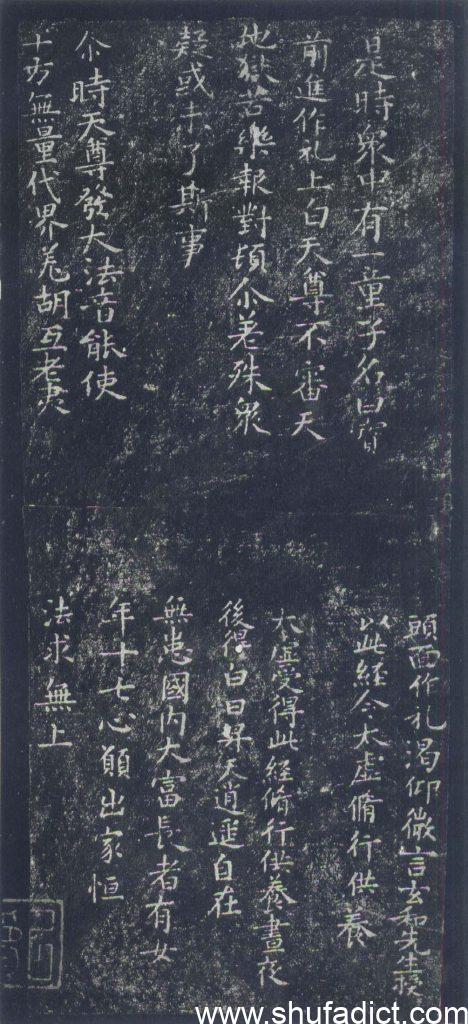 是時衆中有一童子名曰寶
前進作礼上白天尊不審天
地獄苦樂報對頓尒差殊衆
疑或未了斯事
尒時天尊發大法音能使
十方無量代界羌胡互老夷
頭面作礼渴仰微言玄和先生授
以此經令太虛脩行供養
太虛受得此經脩行供養晝夜
後得白日昇天逍遥自在
無患國内大富長者有女
年十七心願出家恒
法求無上
www.shufadict.com